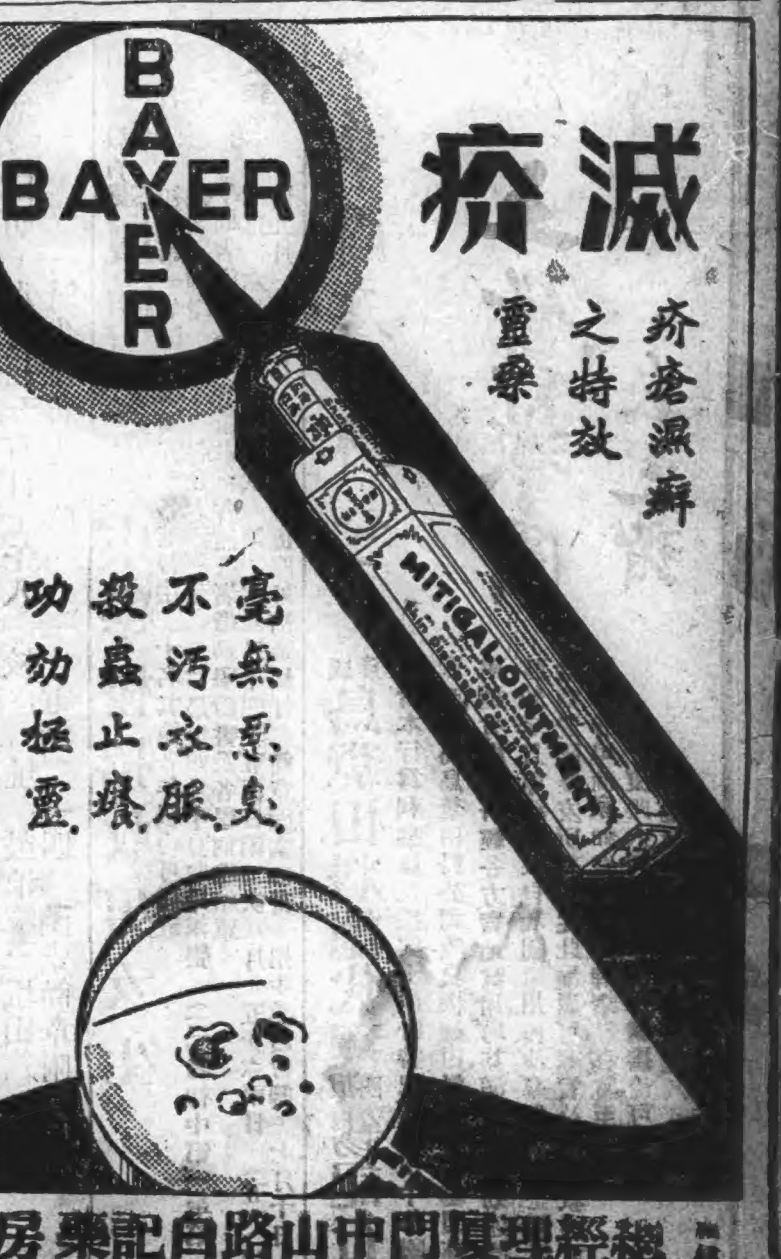 BAYER
BAYER
滅疥
疥瘡濕癬
之特效
靈藥
MITIGAL-OINTMENT
毫無惡臭.
不污衣服.
殺蟲止癢.
功効極靈.
總經理廈門中山路白記藥房